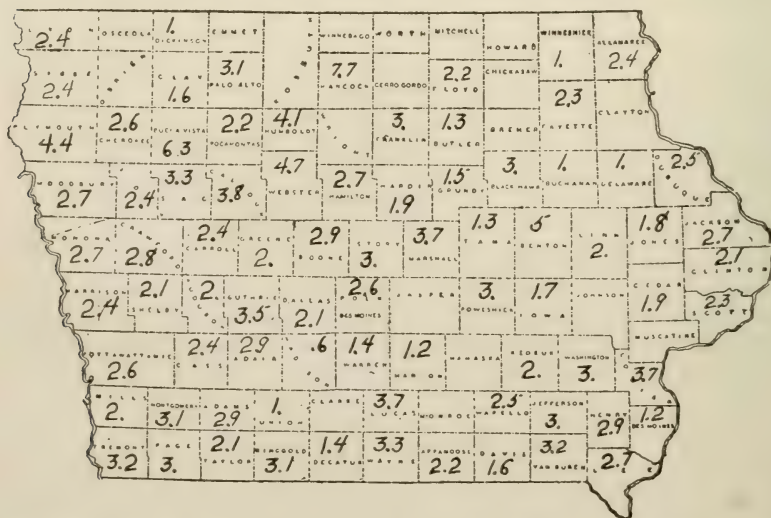 2.4 OSCEOLA 1. DICKINSON EMMET WINNEBAGO WORTH MITCHELL HOWARD WINNESHIEK 1. ALLAMAKEE 2.4
SIOUX 2.4 O'BRIEN CLAY 1.6 3.1 PALO ALTO KOSSUTH 7.7 HANCOCK CERRO GORDO 2.2 FLOYD CHICKASAW
PLYMOUTH 4.4 2.6 CHEROKEE BUENA VISTA 6.3 2.2 POCAHONTAS 4.1 HUMBOLDT WRIGHT 3. FRANKLIN 1.3 BUTLER BREMER 2.3 FAYETTE CLAYTON
WOODBURY 2.7 2.4 3.3 SAC 3.8 4.7 WEBSTER 2.7 HAMILTON HARDIN 1.9 1.5 GRUNDY 3. BLACK HAWK 1. BUCHANAN 1. DELAWARE 2.5 DUBUQUE
MONONA 2.7 2.8 2.4 CARROLL GREENE 2. 2.9 BOONE STORY 3. 3.7 MARSHALL 1.3 TAMA 5 BENTON LINN 2. 1.8 JONES JACKSON 2.7
2.1 CLINTON
HARRISON 2.4 2.1 SHELBY 2. GUTHRIE 3.5 DALLAS 2.1 2.6 POLK DES MOINES JASPER 3. POWESHIEK 1.7 IOWA JOHNSON CEDAR 1.9 2.3 SCOTT
MUSCATINE
POTTAWATTAMIE 2.6 2.4 CASS 2.9 ADAIR .6 1.4 WARREN 1.2 MARION MAHASKA KEOKUK 2. WASHINGTON 3. 3.7
MILLS 2. MONTGOMERY 3.1 ADAMS 2.9 1. UNION CLARKE 3.7 LUCAS MONROE 2.5 WAPELLO JEFFERSON 3. HENRY 2.9 1.2 DES MOINES
FREMONT 3.2 PAGE 3. 2.1 TAYLOR RINGGOLD 3.1 1.4 DECATUR 3.3 WAYNE APPANOOSE 2.2 DAVIS 1.6 3.2 VAN BUREN 2.7 LEE